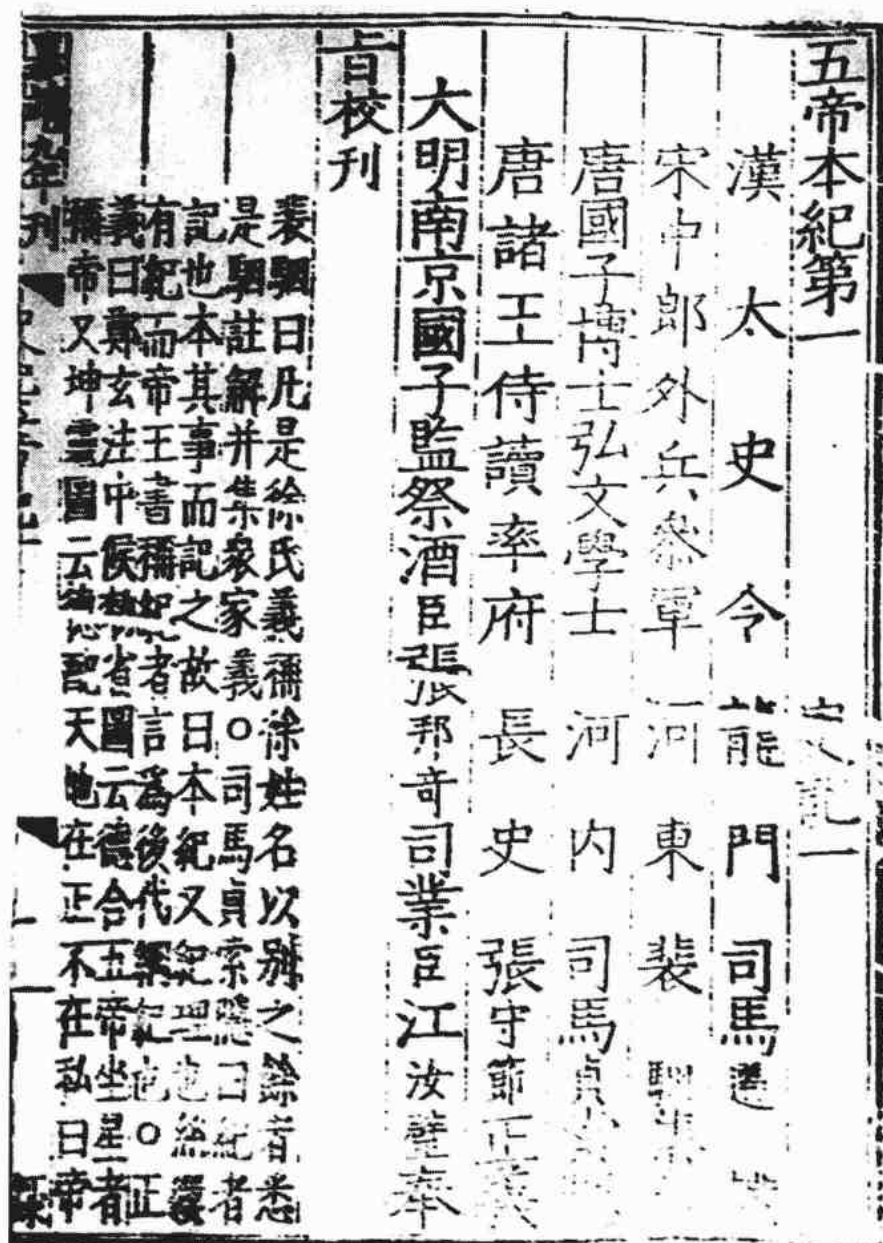 五帝本紀第一 史記一
漢太史令龍門司馬遷
宋中郎外兵叅軍河東裴駰集
唐國子博士弘文學士河內司馬貞
唐諸王侍讀率府長史張守節正義
大明南京國子監祭酒臣張邦奇司業臣江汝璧奉
旨校刊
裴駰曰凡是徐氏義稱徐姓名以別之餘者悉
是駰註解并集衆家義○司馬貞索隱曰紀者
記也本其事而記之故曰本紀又紀理也絲縷
有紀而帝王書稱紀者言爲後代綱紀也○正
義曰鄭玄注中候勑省圖云德合五帝坐星者
稱帝又坤靈圖云德配天地在正不在私曰帝
年刊